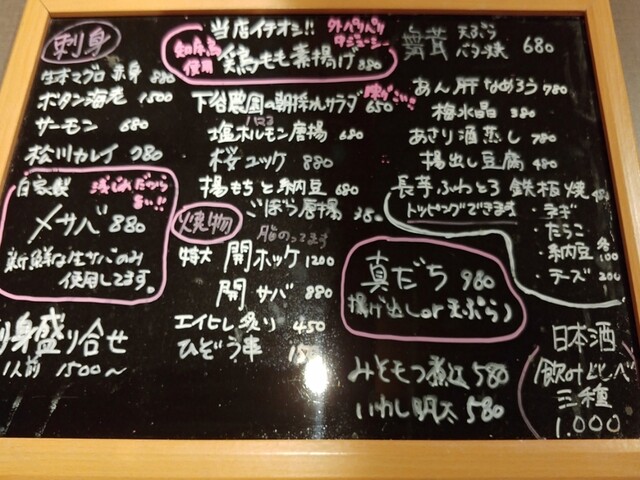 刺身
生本マグロ 赤身 880
ボタン海老 1500
サーモン 680
松川カレイ 980
自家製 浅じめだから旨い!!
〆サバ 880
新鮮な生サバのみ
使用してます。
刺身盛り合せ
1人前 1500〜
当店イチオシ!! 外パリパリ
中ジューシー
知床鳥
使用 鶏もも素揚げ 880
下谷農園の朝採れサラダ 650
塩ホルモン唐揚 680
桜ユッケ 880
揚もちと納豆 680
ごぼう唐揚 380
焼物
脂のってます
特大 開ホッケ 1200
開サバ 880
エイヒレ炙り 450
ひぞう串
雪茸 天ぷら
バタ焼 680
あん肝なめろう 780
梅水晶 380
あさり酒蒸し 780
揚出し豆腐 480
長芋ふわとろ鉄板焼
トッピングできます
・ネギ
・たらこ
・納豆 各
100
・チーズ 200
真だち 980
揚げ出しor天ぷら
みそもつ煮込 580
いわし明太 580
日本酒
飲みくらべ
三種
1.000